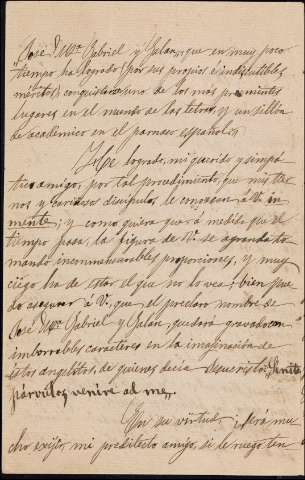 José M.ª Gabriel y Galan, que en muy poco
tiempo ha logrado (por sus propios é indiscutibles
méritos) conquistarse uno de los más prominentes
lugares en el mundo de las letras, y un sillón
de academico en el parnaso español.
He logrado, mi querido y simpá
tico amigo, por tal procedimiento, que mis tier
nos y cariñosos discipulos le conozcan á V. in
mente; y como quiera que á medida que el
tiempo pasa, la figura de V. se agranda to
mando inconmensurables proporciones, y muy
ciego ha de estar el que no lo vea; bien pue
do asegurar á V. que el preclaro nombre de
José M.ª Gabriel y Galan, quedará gravado con
imborrables caracteres en la imaginación de
estos angelitos, de quienes decia Jesucristo: Sinite
párvulos venire ad me.
En su virtud, ¿será mu
cho exijir, mi predilecto amigo, si le ruego ten